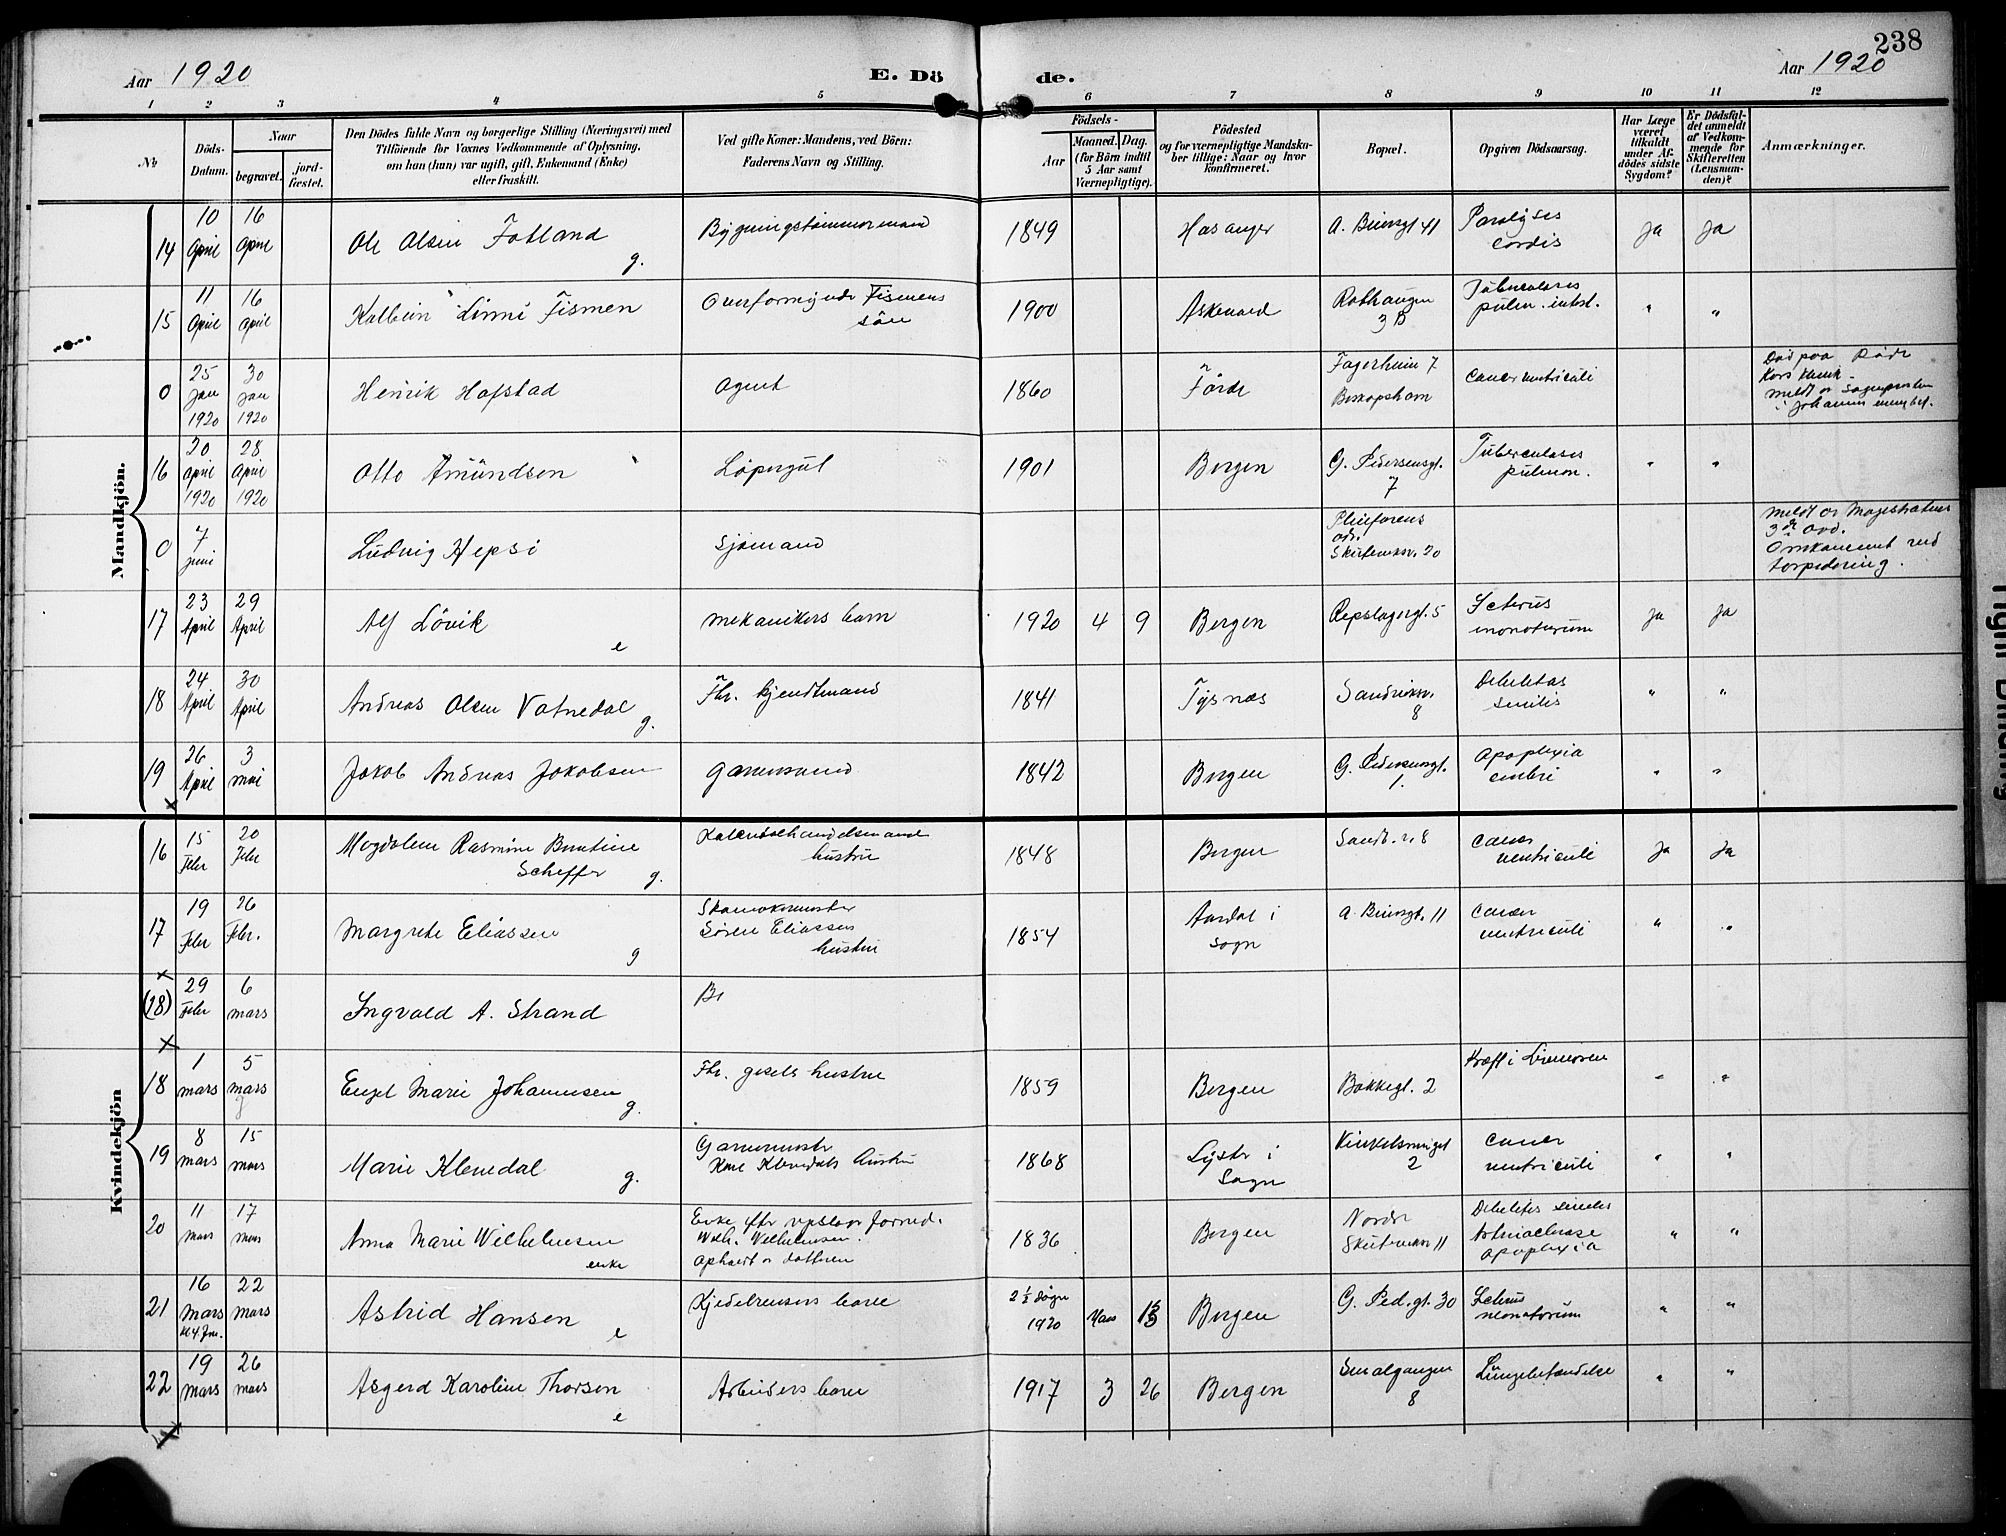 238
Aar 1920
E. Döde.
Aar 1920
1 2 3 4 5 6 7 8 9 10 11 12
No
Döds-Datum.
Naar
begravet.
jord-fæstet.
Den Dödes fulde Navn og borgerlige Stilling (Næringsvei) med
Tilföiende for Voxnes Vedkommende af Oplysning,
om han (hun) var ugift, gift, Enkemand (Enke)
eller fraskilt.
Ved gifte Koner: Mandens, ved Börn:
Faderens Navn og Stilling.
Födsels-
Aar
Maaned. Dag.
(for Börn indtil
5 Aar samt
Værnepligtige).
Födested
og for værnepligtige Mandska-
ber tillige: Naar og hvor
konfirmeret.
Bopæl.
Opgiven Dödsaarsag.
Har Læge
været
tilkaldt
under Af-
dödes sidste
Sygdom?
Er Dödsfal-
det anmeldt
af Vedkom-
mende for
Skifteretten
(Lensman-
den)?
Anmærkninger.
Mandkjön.
14 10 April 16 April Ole Olsen Fotland g. Bygningstømmermand 1849 A. Biensgt 41 Paralyses cordis Ja Ja
15 11 April 16 April Linné Fismen Overformynder Fismens sön 1900 Askevold Rothaugen 3 B Tuberculoses pulm. " "
0 25 Jan 1920 30 Jan 1920 Henrik Hofstad Agent 1860 Förde Fagerheim 7 Biskopshavn Cancer ventriculi Död paa Röde Kors klinik. meldt av Sognepresten i Johannes menighet.
16 20 April 1920 28 April 1920 Otto Amundsen Løpergut 1901 Bergen G. Pedersensgt. 7 Tuberculoses pulmon. " "
0 7 juni Ludvig Hepsö Sjømand Skuteviksv. 20 meldt av Magistratens 3die avd. Omkommet ved torpedering.
17 23 April 29 April Alf Lövik e mekanikers barn 1920 4 9 Bergen Repslagergt. 5 Icterus neonatorum Ja Ja
18 24 April 30 April Andreas Olsen Vatnedal g. Fhv. kjendtmand 1841 Tysnæs Sandviksv. 8 Debilitas senilis " "
19 26 April 3 mai Jakob Andreas Jakobsen Garnmand 1842 Bergen G. Pedersensgt. 1. Apoplexia cerebri " "
Kvindekjön
16 15 Febr 20 Febr Magdalene Rasmine Bentine Scheffer g. hustru 1848 Bergen Sandv. v. 8 Cancer ventriculi Ja Ja
17 19 Febr 26 Febr. Margrete Eliassen g Sören Eliassens hustru 1854 Aardal i Sogn A. Biensgt. 11 Cancer ventriculi " "
(18) 29 Febr 6 mars Ingvald A. Strand Br
18 1 mars 5 mars Engel Marie Johannesen g. Fhv. gjesels hustru 1859 Bergen Bakkegt. 2 Kræft i Livmoren " "
19 8 mars 15 mars Marie Klevedal g. Garnmester Karl Klevedals hustru 1868 Lyster i Sogn Vinkelsmuget 2 Cancer ventriculi " "
20 11 mars 17 mars Anna Marie Wilhelmsen enke Enke efter Wilh. Wilhelmsen. Ophold av datteren 1836 Bergen Nordre Skuteviksv 11 Debilitas senilis Apoplexia " "
21 16 mars kl 4 fm. 22 mars Astrid Hansen e Kjedelrensers barn 2 ½ døgn 1920 Mars 13 Bergen G. Ped. gt. 30 Icterus neonatorum " "
22 19 mars 26 mars Asgerd Karoline Thorsen e Arbeiders barn 1917 3 26 Bergen Smalgangen 8 Lungebetændelse " "